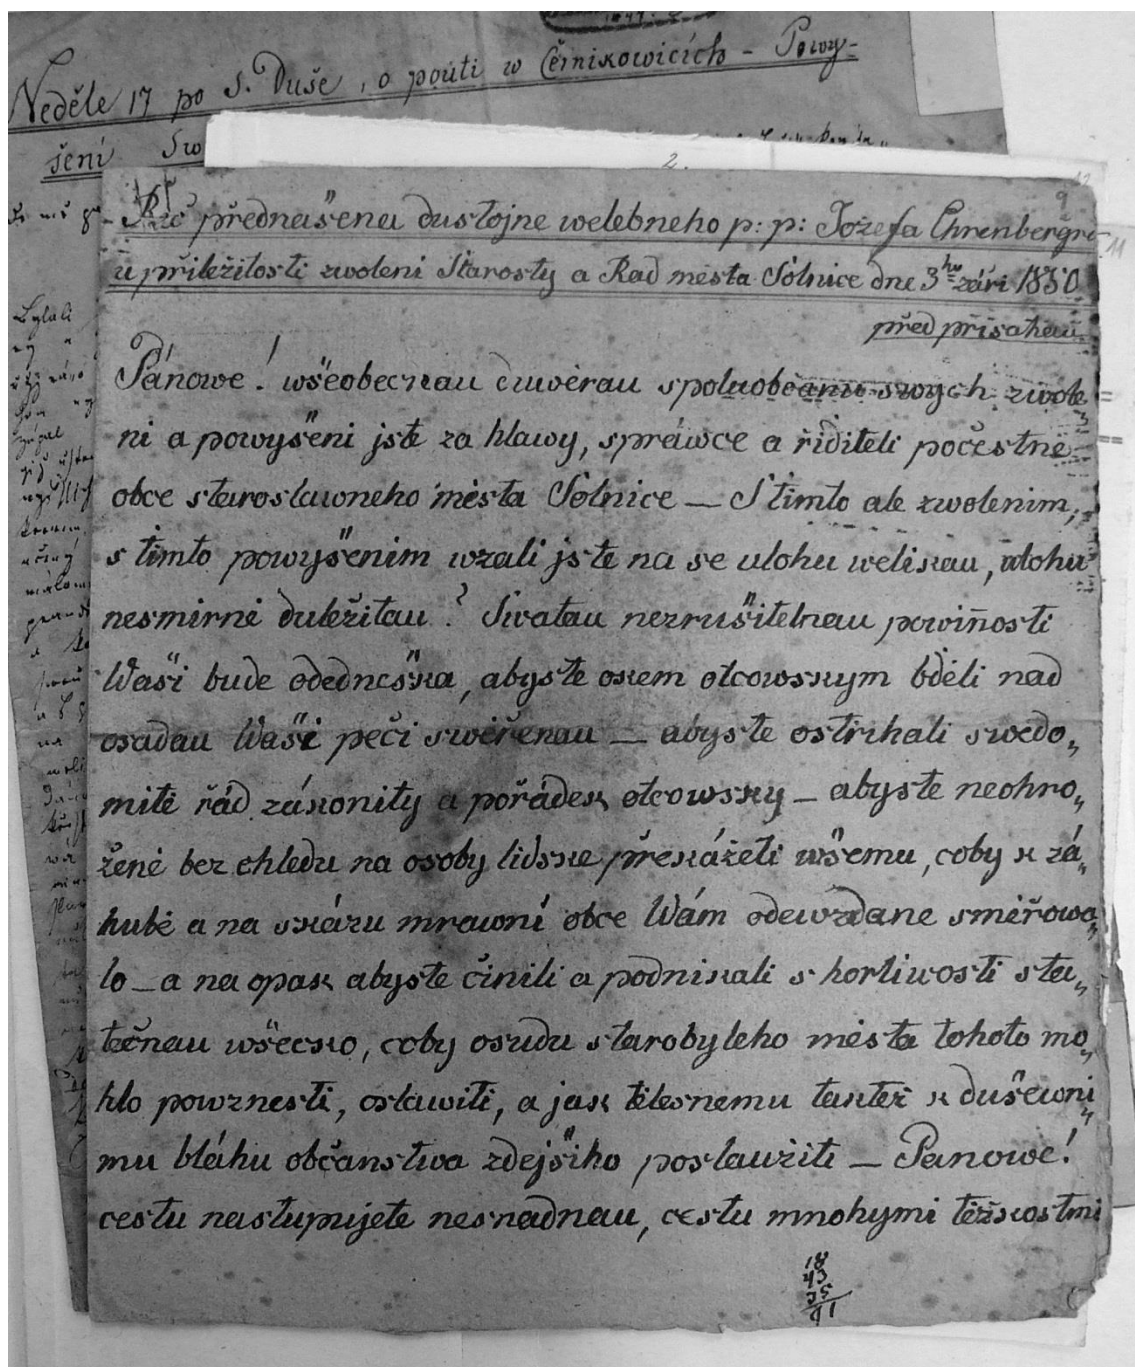 Neděle 17 po S. Duše, o pouti w Černikowicich - Powy-
šeni Sw
2.
9
11
Řeč přednašena dustojne welebneho p: p: Jozefa Ehrenbergra
u přiležitosti zwoleni Starosty a Rad města Solnice dne 3ho zaři 1850
před přisahau
Pánowe! wšeobecnau duwěrau spoluobčanu swych zwole
ni a powyšeni jste za hlawy, spráwce a řiditeli počestne
obce staroslawneho města Solnice — S timto ale zwolenim,
s timto powyšenim wzali jste na se ulohu welikau, ulohu
nesmirně duležitau? Swatau nezrušitelnau powiňosti
Waši bude odedneška, abyste okem otcowskym bděli nad
osadau Waši peči swěřenau — abyste ostřihali swědo„
mitě řád zákonity a pořádek otcowsky — abyste neohro„
ženě bez ohledu na osoby lidske překáželi wšemu, coby k zá„
hubě a na skázu mrawní obce Wám odewzdane směřowa„
lo — a na opak abyste činili a podnikali s horliwosti sta„
tečnau wšecko, coby osudu starobyleho města tohoto mo„
hlo powznesti, oslawiti, a jak tělesnemu taktéž k duševni„
mu bláhu občanstwa zdejšiho poslaužiti — Panowé!
cestu nastupujete nesnadnau, cestu mnohymi těžkostmi
18
43